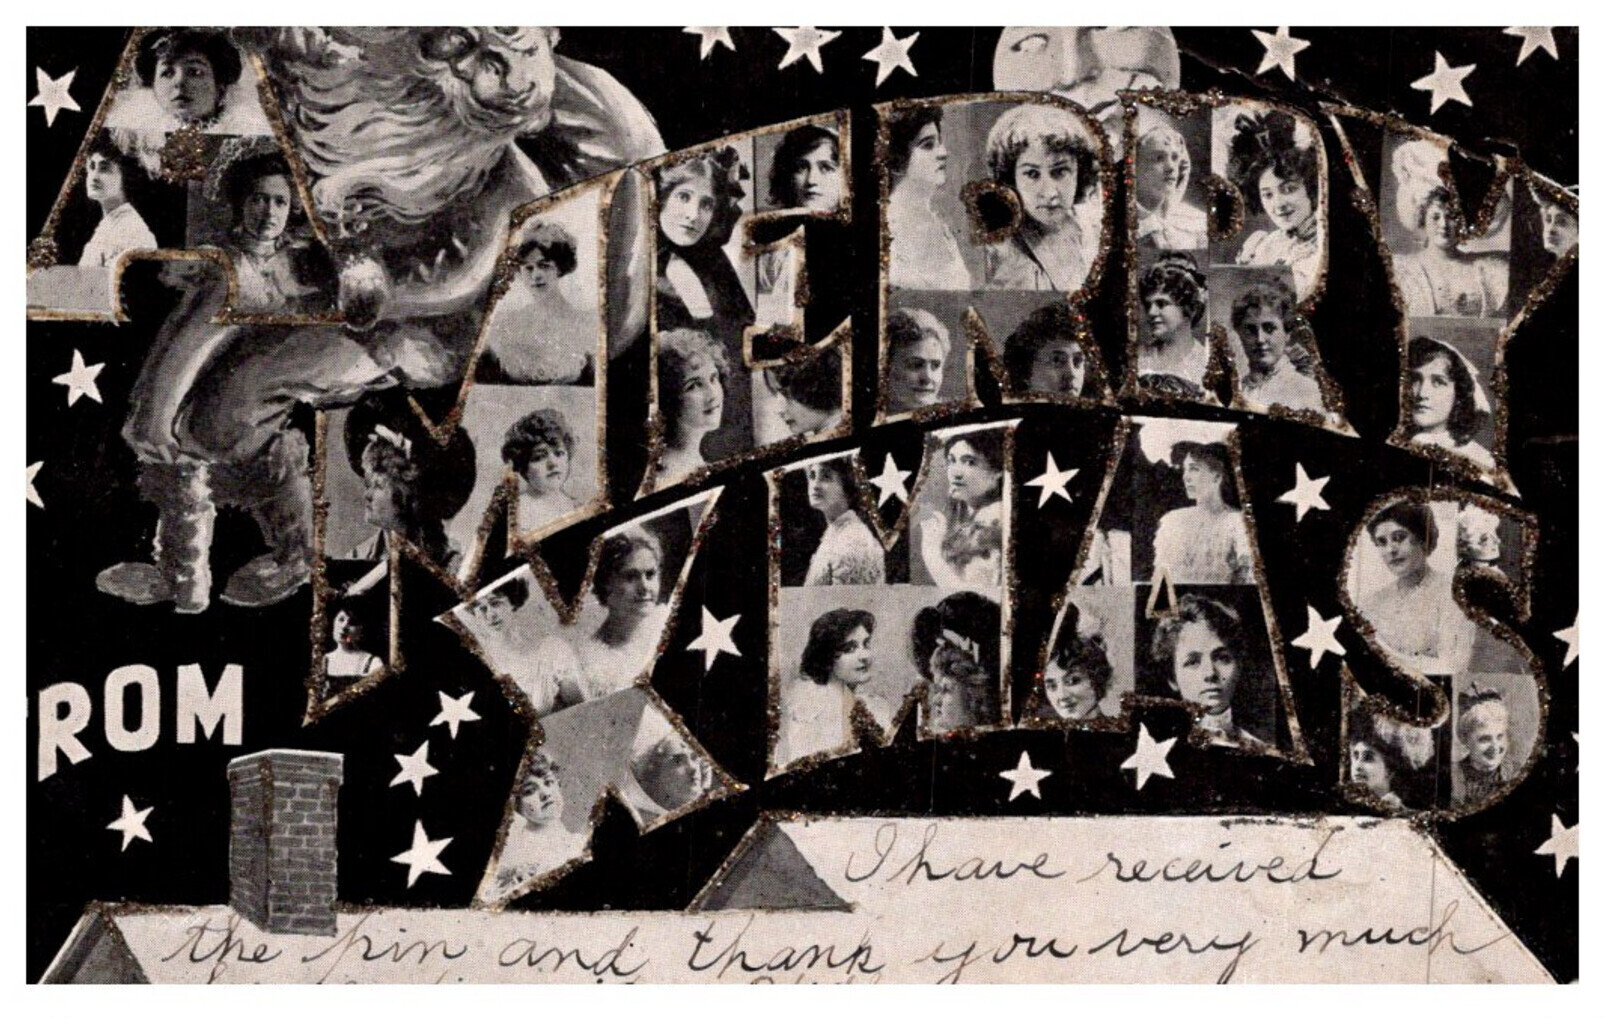 A MERRY
XMAS
FROM
I have received
the pin and thank you very much